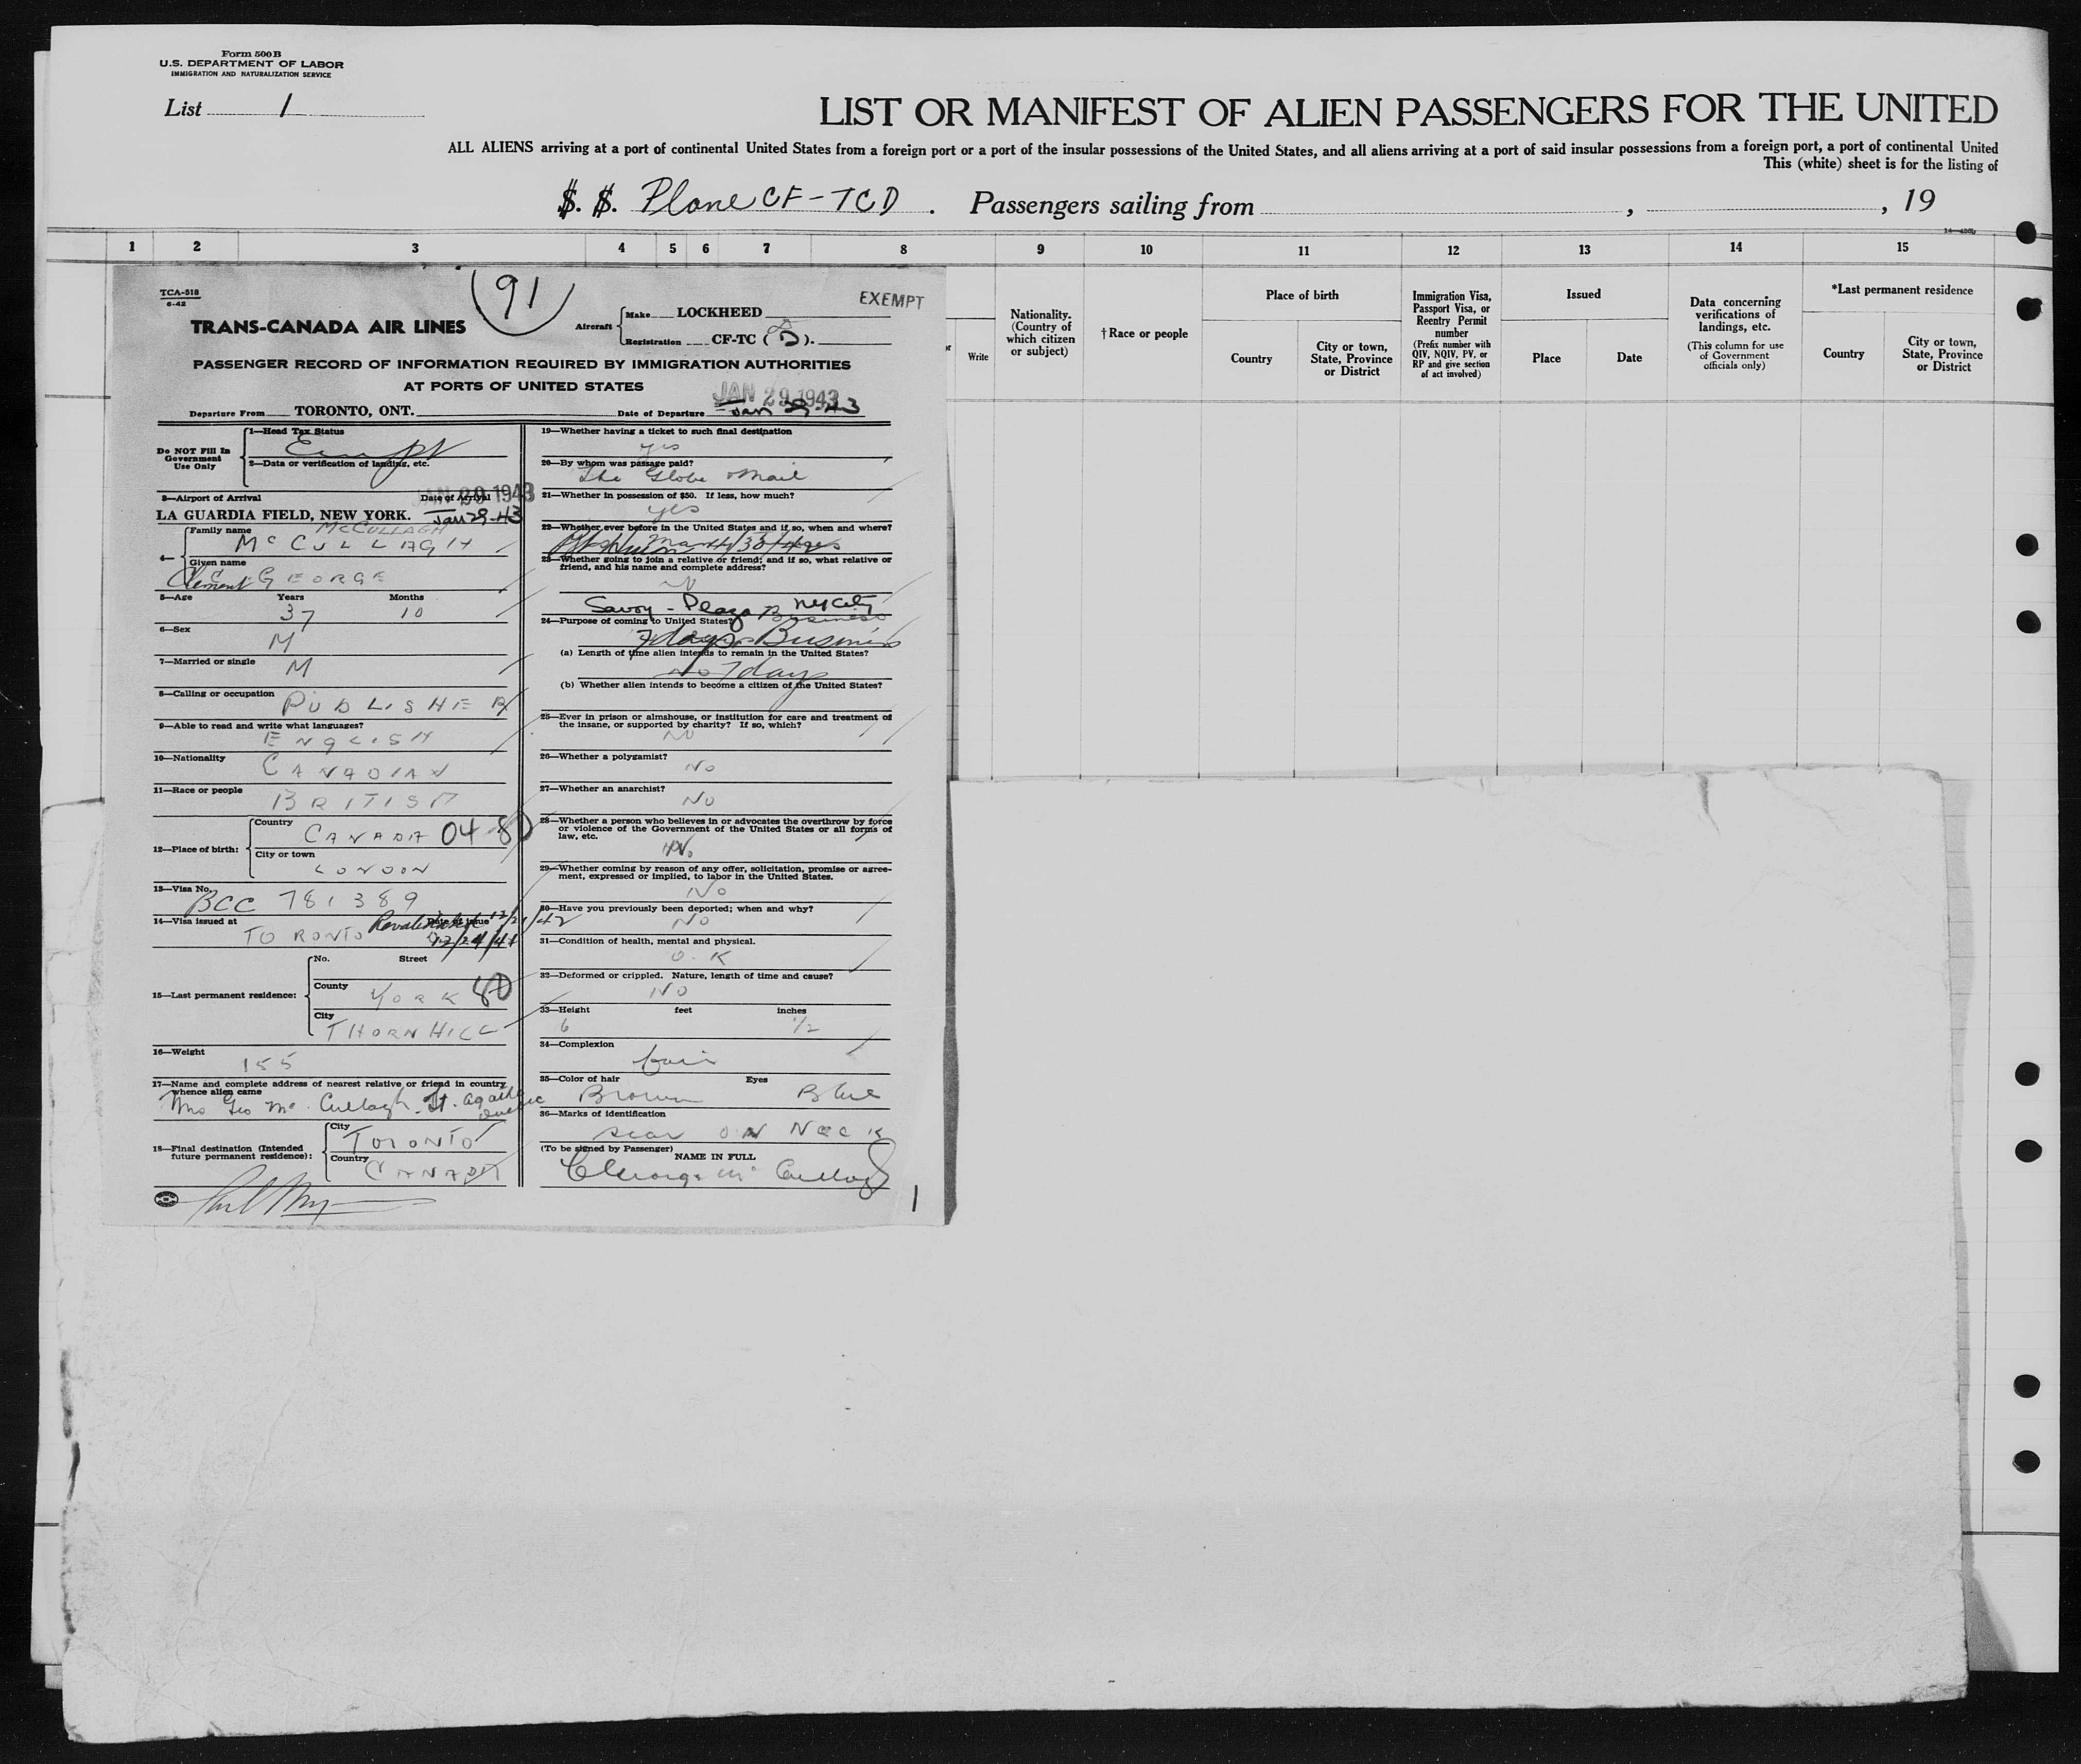 Form 500B
U.S. DEPARTMENT OF LABOR
IMMIGRATION AND NATURALIZATION SERVICE
List 1
LIST OR MANIFEST OF ALIEN PASSENGERS FOR THE UNITED
ALL ALIENS arriving at a port of continental United States from a foreign port or a port of the insular possessions of the United States, and all aliens arriving at a port of said insular possessions from a foreign port, a port of continental United
This (white) sheet is for the listing of
S. S. Plane CF-TCD . Passengers sailing from , , 19
1 2 3 4 5 6 7 8 9 10 11 12 13 14 15
Write
Nationality. (Country of which citizen or subject)
† Race or people
Place of birth
Country
City or town, State, Province or District
Immigration Visa, Passport Visa, or Reentry Permit number
(Prefix number with QIV, NQIV, PV, or RP and give section of act involved)
Issued
Place
Date
Data concerning verifications of landings, etc.
(This column for use of Government officials only)
*Last permanent residence
Country
City or town, State, Province or District
TCA-518
6-42
91
EXEMPT
TRANS-CANADA AIR LINES
Aircraft
Make LOCKHEED
Registration CF-TC (D).
PASSENGER RECORD OF INFORMATION REQUIRED BY IMMIGRATION AUTHORITIES
AT PORTS OF UNITED STATES
JAN 29 1943
Departure From TORONTO, ONT. Date of Departure Jan 29-43
Do NOT Fill In Government Use Only
1—Head Tax Status
Exempt
2—Data or verification of landing, etc.
3—Airport of Arrival Date of Arrival
JAN 29 1943
LA GUARDIA FIELD, NEW YORK. Jan 29-43
4—
Family name McCULLAGH
McCULLAGH
Given name
Clement GEORGE
5—Age Years Months
37 10
6—Sex
M
7—Married or single
M
8—Calling or occupation
PUBLISHER
9—Able to read and write what languages?
ENGLISH
10—Nationality
CANADIAN
11—Race or people
BRITISH
12—Place of birth:
Country
CANADA 04 80
City or town
LONDON
13—Visa No.
BCC 781389
14—Visa issued at Date of issue
TORONTO 12/24/41
12/21/42
15—Last permanent residence:
No. Street
County
YORK 80
City
THORNHILL
16—Weight
155
17—Name and complete address of nearest relative or friend in country whence alien came
Mrs Geo Mc Cullagh St. Agathe Quebec
18—Final destination (Intended future permanent residence):
City
TORONTO
Country
CANADA
19—Whether having a ticket to such final destination
yes
20—By whom was passage paid?
The Globe & Mail
21—Whether in possession of $50. If less, how much?
yes
22—Whether ever before in the United States and if so, when and where?
23—Whether going to join a relative or friend; and if so, what relative or friend, and his name and complete address?
No
Savoy-Plaza NY City
24—Purpose of coming to United States?
Business
7 days Business
(a) Length of time alien intends to remain in the United States?
No 7 days
(b) Whether alien intends to become a citizen of the United States?
25—Ever in prison or almshouse, or institution for care and treatment of the insane, or supported by charity? If so, which?
No
26—Whether a polygamist?
No
27—Whether an anarchist?
No
28—Whether a person who believes in or advocates the overthrow by force or violence of the Government of the United States or all forms of law, etc.
No
29—Whether coming by reason of any offer, solicitation, promise or agreement, expressed or implied, to labor in the United States.
No
30—Have you previously been deported; when and why?
No
31—Condition of health, mental and physical.
O.K
32—Deformed or crippled. Nature, length of time and cause?
No
33—Height feet inches
6 1/2
34—Complexion
fair
35—Color of hair Eyes
Brown Blue
36—Marks of identification
scar ON NECK
(To be signed by Passenger) NAME IN FULL
C George Mc Cullagh
1